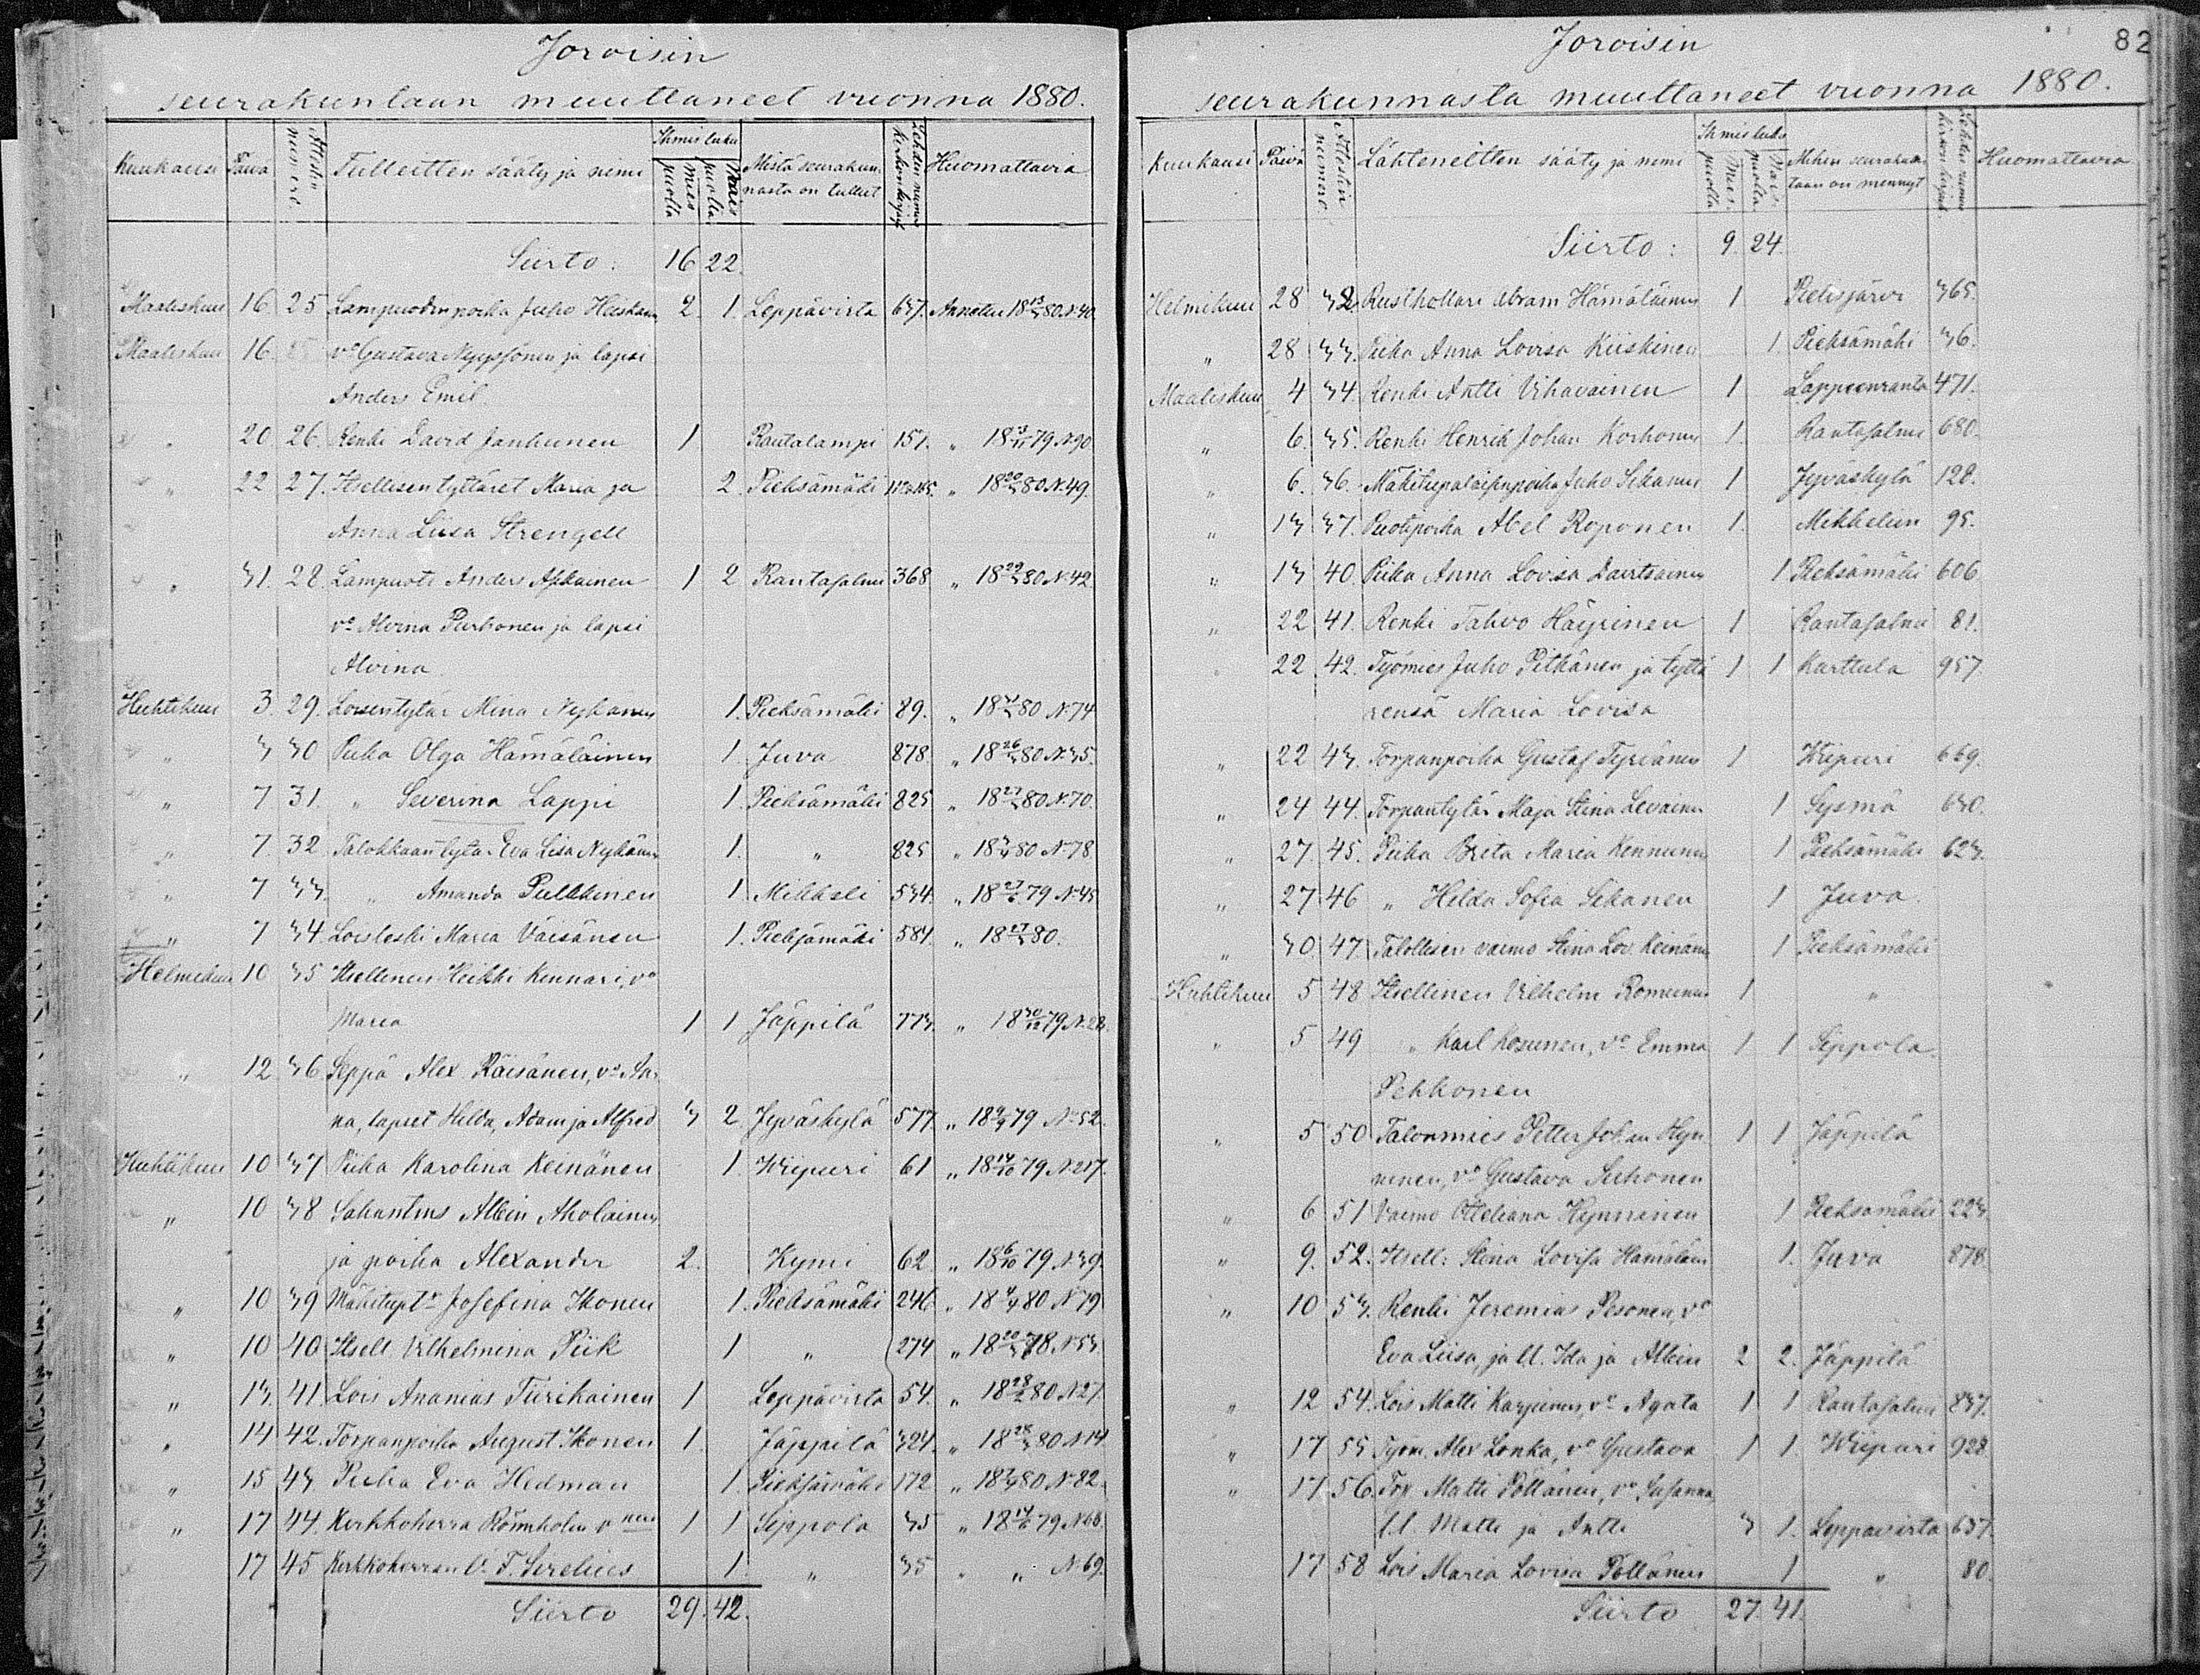 Joroisin
seurakuntaan muuttaneet vuonna 1880.
Kuukausi Päivä Attestin numero Tulleitten sääty ja nimi Ihmisluku Mies puolia Vais puolia Mistä seurakunnasta on tullut Huomattavia
Siirto: 16 22.
Maaliskuu 16. 25 Lampuodin poika Juho Heiskan 2. 1. Leppävirta 637. Annettu 18 13/3 80 N:40
Maaliskuu 16 v:o Gustava ja lapsi
Anders Emil
" 20 26. Renki David Janhunen 1. Rautalampi 157. " 79 N:90
" 22 27. Itsellisen tyttäret Maria ja 2. Pieksämäki " 18 20/3 80 N:49.
Anna Liisa Strengell
" 31. 28. Lampuoti Anders Asikainen 1 2 Rantasalmi 368 " 18 29/3 80 N:42
v:o Alvina Purhonen ja lapsi
Alvina
Huhtikuu 3. 29. Loisentytär Mina Nykänen 1. Pieksämäki 89. " 80 N:74
" 3 30 Piika Olga Hämäläinen 1. Juva 878. " 18 26/3 80 N:35.
" 7 31. " Severina Lappi 1. Pieksämäki 825 " 18 27/3 80 N:70.
" 7. 32 Talokkaan tytär Eva Lisa Nykänen 1. " 825 " 80 N:78.
" 7 33. " Amanda Pulkkinen 1. Mikkeli 534. " 79 N:45
" 7 34 Loisleski Maria Väisänen 1. Pieksämäki 584. " 18 27/3 80.
Helmikuu 10 35 Itsellinen Heikki Kinnari, v:o
Maria 1 1 Jäppilä 773. " 18 30/12 79 N:22.
" 12 36 Seppä Alex Räisänen, v:o An-
na, lapset Hilda, Adam ja Alfred 3 2 Jyväskylä 577. " 79 N:52.
Huhtikuu 10 37 Piika Karolina Keinänen 1. Wiipuri 61 " 18 14/10 79 N:217.
" 10 38 Sahantms Albin Aholainen
ja poika Alexander 2. Kymi 62 " 18 6/10 79 N:39.
" 10 39 Mäkitupt:r Josefina Ikonen 1. Pieksämäki 246 " 80 N:79
" 10 40 Itsell Vilhelmina Piik 1 " 274 " 78 N:53
" 13. 41. Lois Ananias Tiirikainen 1 Leppävirta 54. " 18 28/2 80 N:27.
" 14 42. Torpanpoika August Ikonen 1. Jäppilä 324. " 80 N:14
" 15 43 Piika Eva Hedman 1. Pieksämäki 172 " 80 N:82.
" 17 44. Kirkkoherra Rönnholm v 1 1 Seppola 35 " 79 N:66.
" 17 45 Kirkkoherran V. F. Serelius 1. " 35 " " N:69.
Siirto 29. 42.
82
Joroisin
seurakunnasta muuttaneet vuonna 1880.
Kuukausi Päivä Attestin numero Lähteneitten sääty ja nimi Ihmisluku Mies puolia Vais puolia Mihin seurakuntaan on mennyt Huomattavia
Siirto: 9. 24.
Helmikuu 28 32. Rusthollari Abram Hämäläinen 1 Pielisjärvi 365.
" 28 33. Piika Anna Lovisa Kiiskinen 1. Pieksämäki 36.
Maaliskuu 4 34 Renki Antti Vihavainen 1 Lappeenranta 471.
" 6. 35. Renki Henrik Johan Korhonen 1. Rantasalmi 680.
" 6. 36. Mäkitupalaisen poika Juho Sikanen 1 Jyväskylä 128.
" 13 37. Puotipoika Abel Roponen 1. Mikkeliin 95.
" 13 40. Piika Anna Lovisa Davitsainen 1 Pieksämäki 606.
" 22 41. Renki Tahvo Häyrinen 1 Rantasalmi 81.
" 22. 42. Työmies Juho Pitkänen ja tyttä 1 1 Karttula 957.
rensä Maria Lovisa
" 22 43. Torpanpoika Gustaf Tyrväinen 1 Wiipuri 669.
" 24 44. Torpantytär Maja Stina Levainen 1 Sysmä 630.
" 27. 45. Piika Brita Maria Kinnunen 1 Pieksämäki 623.
" 27 46 " Hilda Sofia Sikanen 1 Juva
" 30. 47. Talollisen vaimo Stina Lov. Keinänen 1 Pieksämäki
Huhtikuu 5 48 Itsellinen Vilhelm Romunen 1 "
" 5 49 " Karl Kosunen, v:o Emma 1 1 Seppola.
Pekkonen
" 5 50 Talonmies Petter Johan Hyn- 1 1 Jäppilä
ninen, v:o Gustava Suhonen
" 6 51 Vaimo Otteliana Hynninen 1 Pieksämäki 223.
" 9. 52. Itsell: Stina Lovisa Hämäläin 1. Juva 878.
" 10 53. Renki Jeremias Pesonen, v:o
Eva Liisa, ja ll. Ida ja Albin 2 2. Jäppilä
" 12 54. Lois Matti Karpinen, v:o Agata 1 1 Rantasalmi 837.
" 17 55 Työm. Alex Lonka, v:o Gustava 1 1. Wiipuri 928.
" 17 56. Torp Matti Pöllänen, v:o Susanna,
l.l. Matti ja Antti 3 1. Leppävirta 637.
17 58 Lois Maria Lovisa Pöllänen 1 " 80.
Siirto 27. 41.